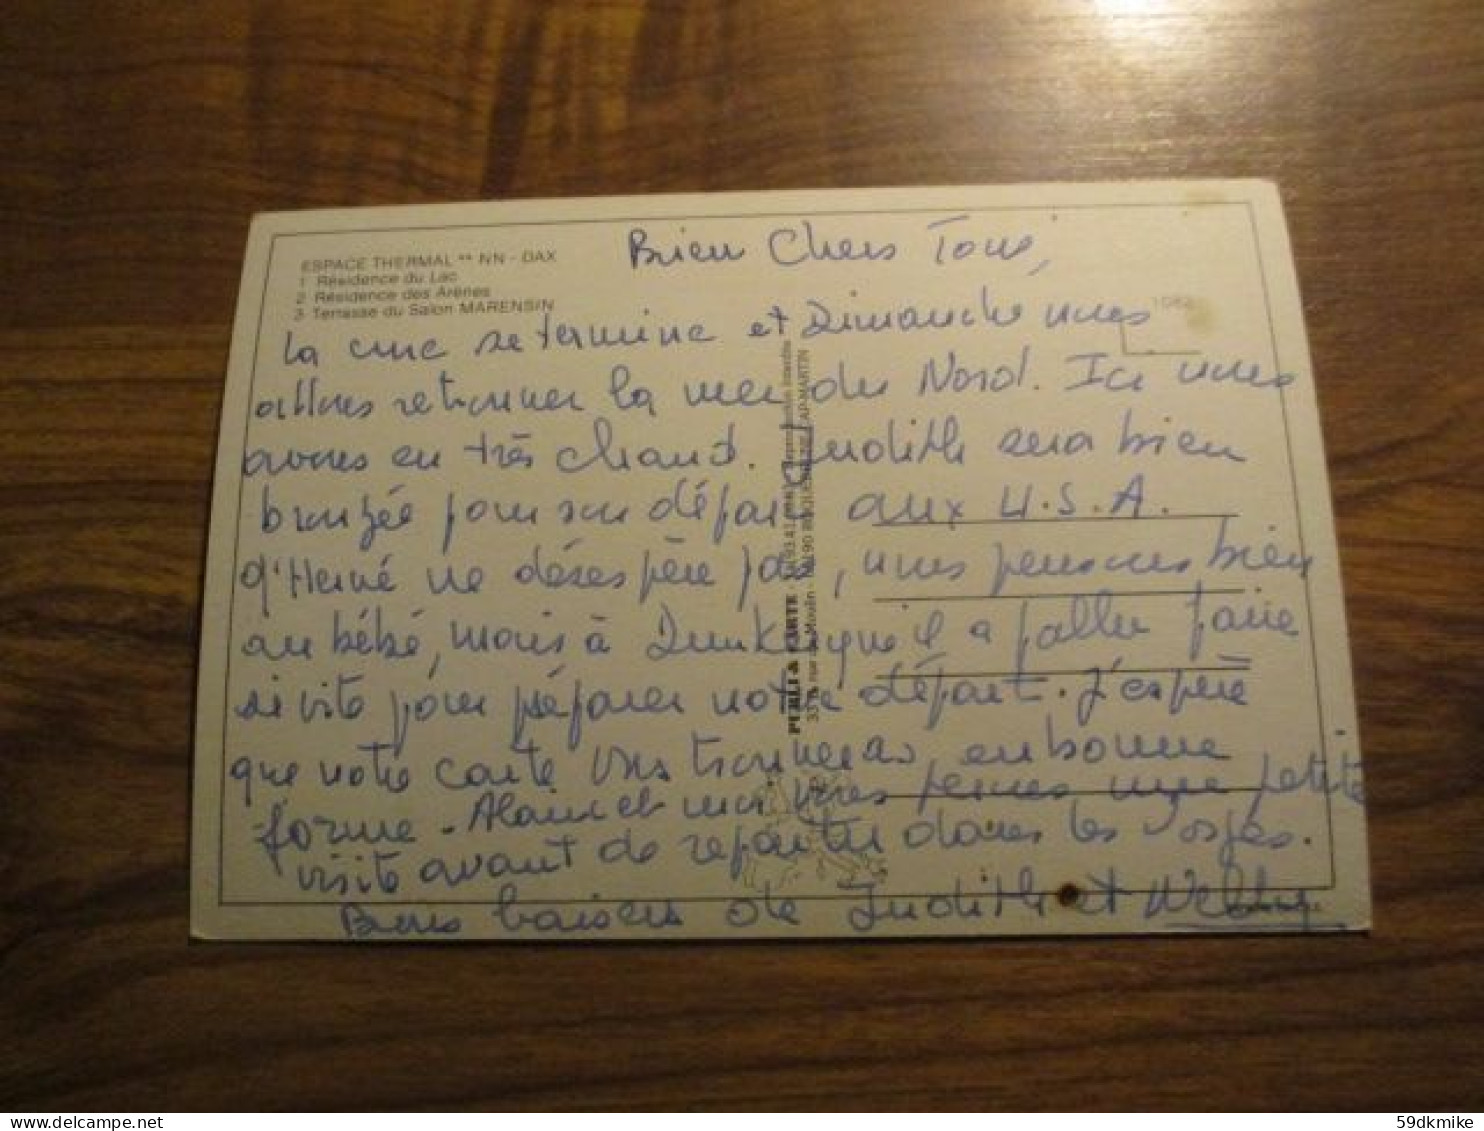 ESPACE THERMAL ** NN - DAX
1 Résidence du Lac
2 Résidence des Arènes
3 Terrasse du Salon MARENSIN
1082
Bien Chers Tous,
la cure se termine et Dimanche nous
allons retrouver la mer du Nord. Ici nous
avons eu très chaud. Judith sera bien
bronzée pour son départ aux U.S.A.
q'Hervé ne désespère pas, nous pensons bien
au bébé, mais à Dunkerque il a fallu faire
si vite pour préparer notre départ. J'espère
que notre carte vous trouvera en bonne
forme. Alain et moi vous ferons une petite
visite avant de repartir dans les Vosges.
Bons baisers de Judith et
PERLI & CARTE
59dkmike